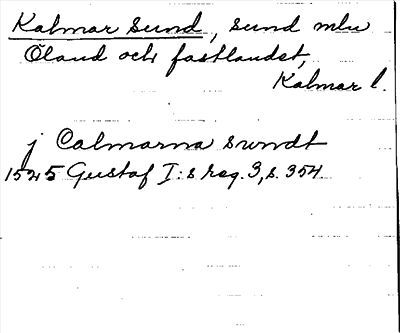 Kalmar Sund, sund mlu
Öland och fastlandet,
Kalmar l.
j Calmarna sundt
1525 Gustaf I:s reg. 3, s. 354